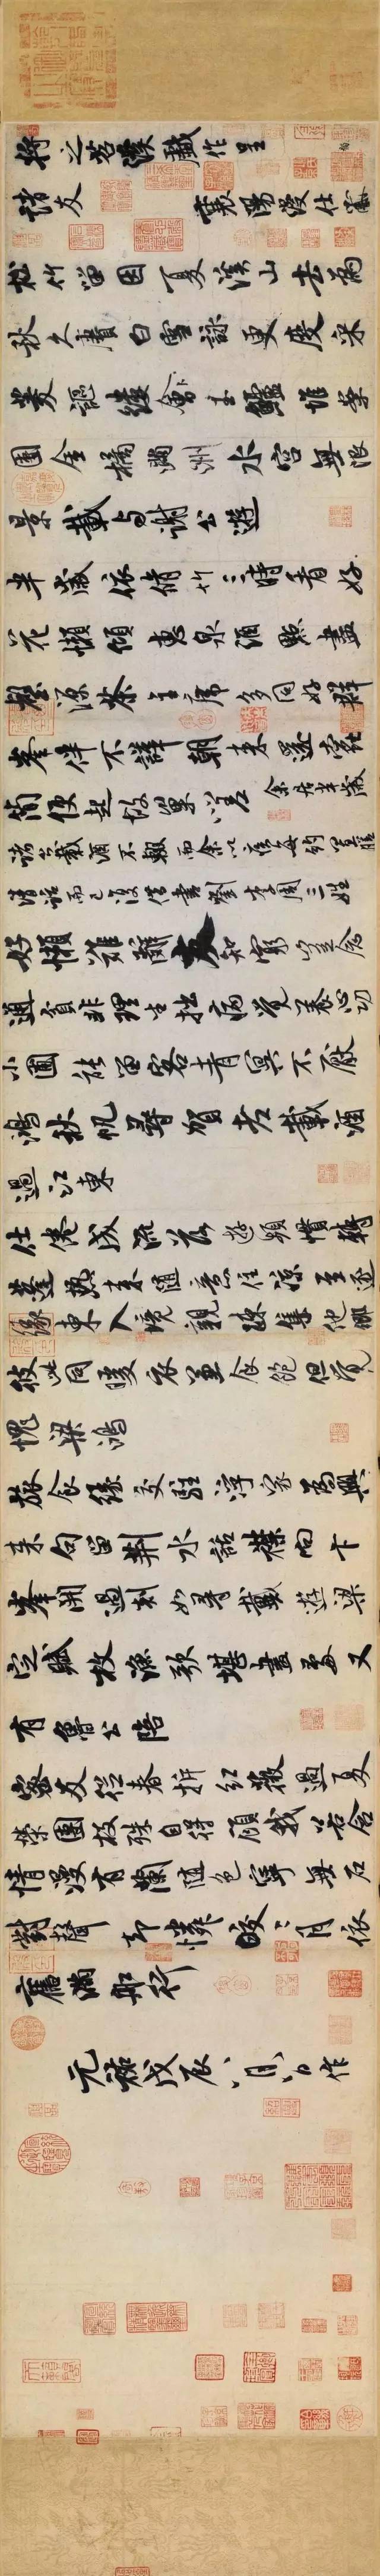 將之苕溪戲作呈
諸友 襄陽漫仕黻
松竹留因夏溪山去為
秋久賡白雪詠更度采
菱謳縷會玉鱸堆案
團金橘滿洲水宮無限
景載與謝公遊
半歲依修竹三時看好
花懶傾惠泉酒點盡
壑源茶主席多同好群
峯伴不譁朝來還蠹
簡便起故巢嗟 余居半歲
諸公載酒不輟而余以疾每約置膳
清話而已復借書劉李周三姓
好懶難辭友知窮豈念
通貧非理生拙病覺養心功
小圃能留客青冥不厭
鴻秋帆尋賀老載酒
過江東
仕倦成流落遊頻慣轉
蓬熱來隨意住涼至逐
緣東入境親疎集他鄉
彼此同暖衣兼食飽但覺
愧梁鴻
旅食緣交駐浮家為興
來句留荊水話襟向卞
峯開過剡如尋戴遊梁
定賦枚漁歌堪畫處又
有魯公陪
密友從春拆紅薇過夏
榮團枝殊自得顧我若含
情漫有蘭隨色寧無石
對聲卻憐皎皎月依
舊滿船行
元祐戊辰八月八日作